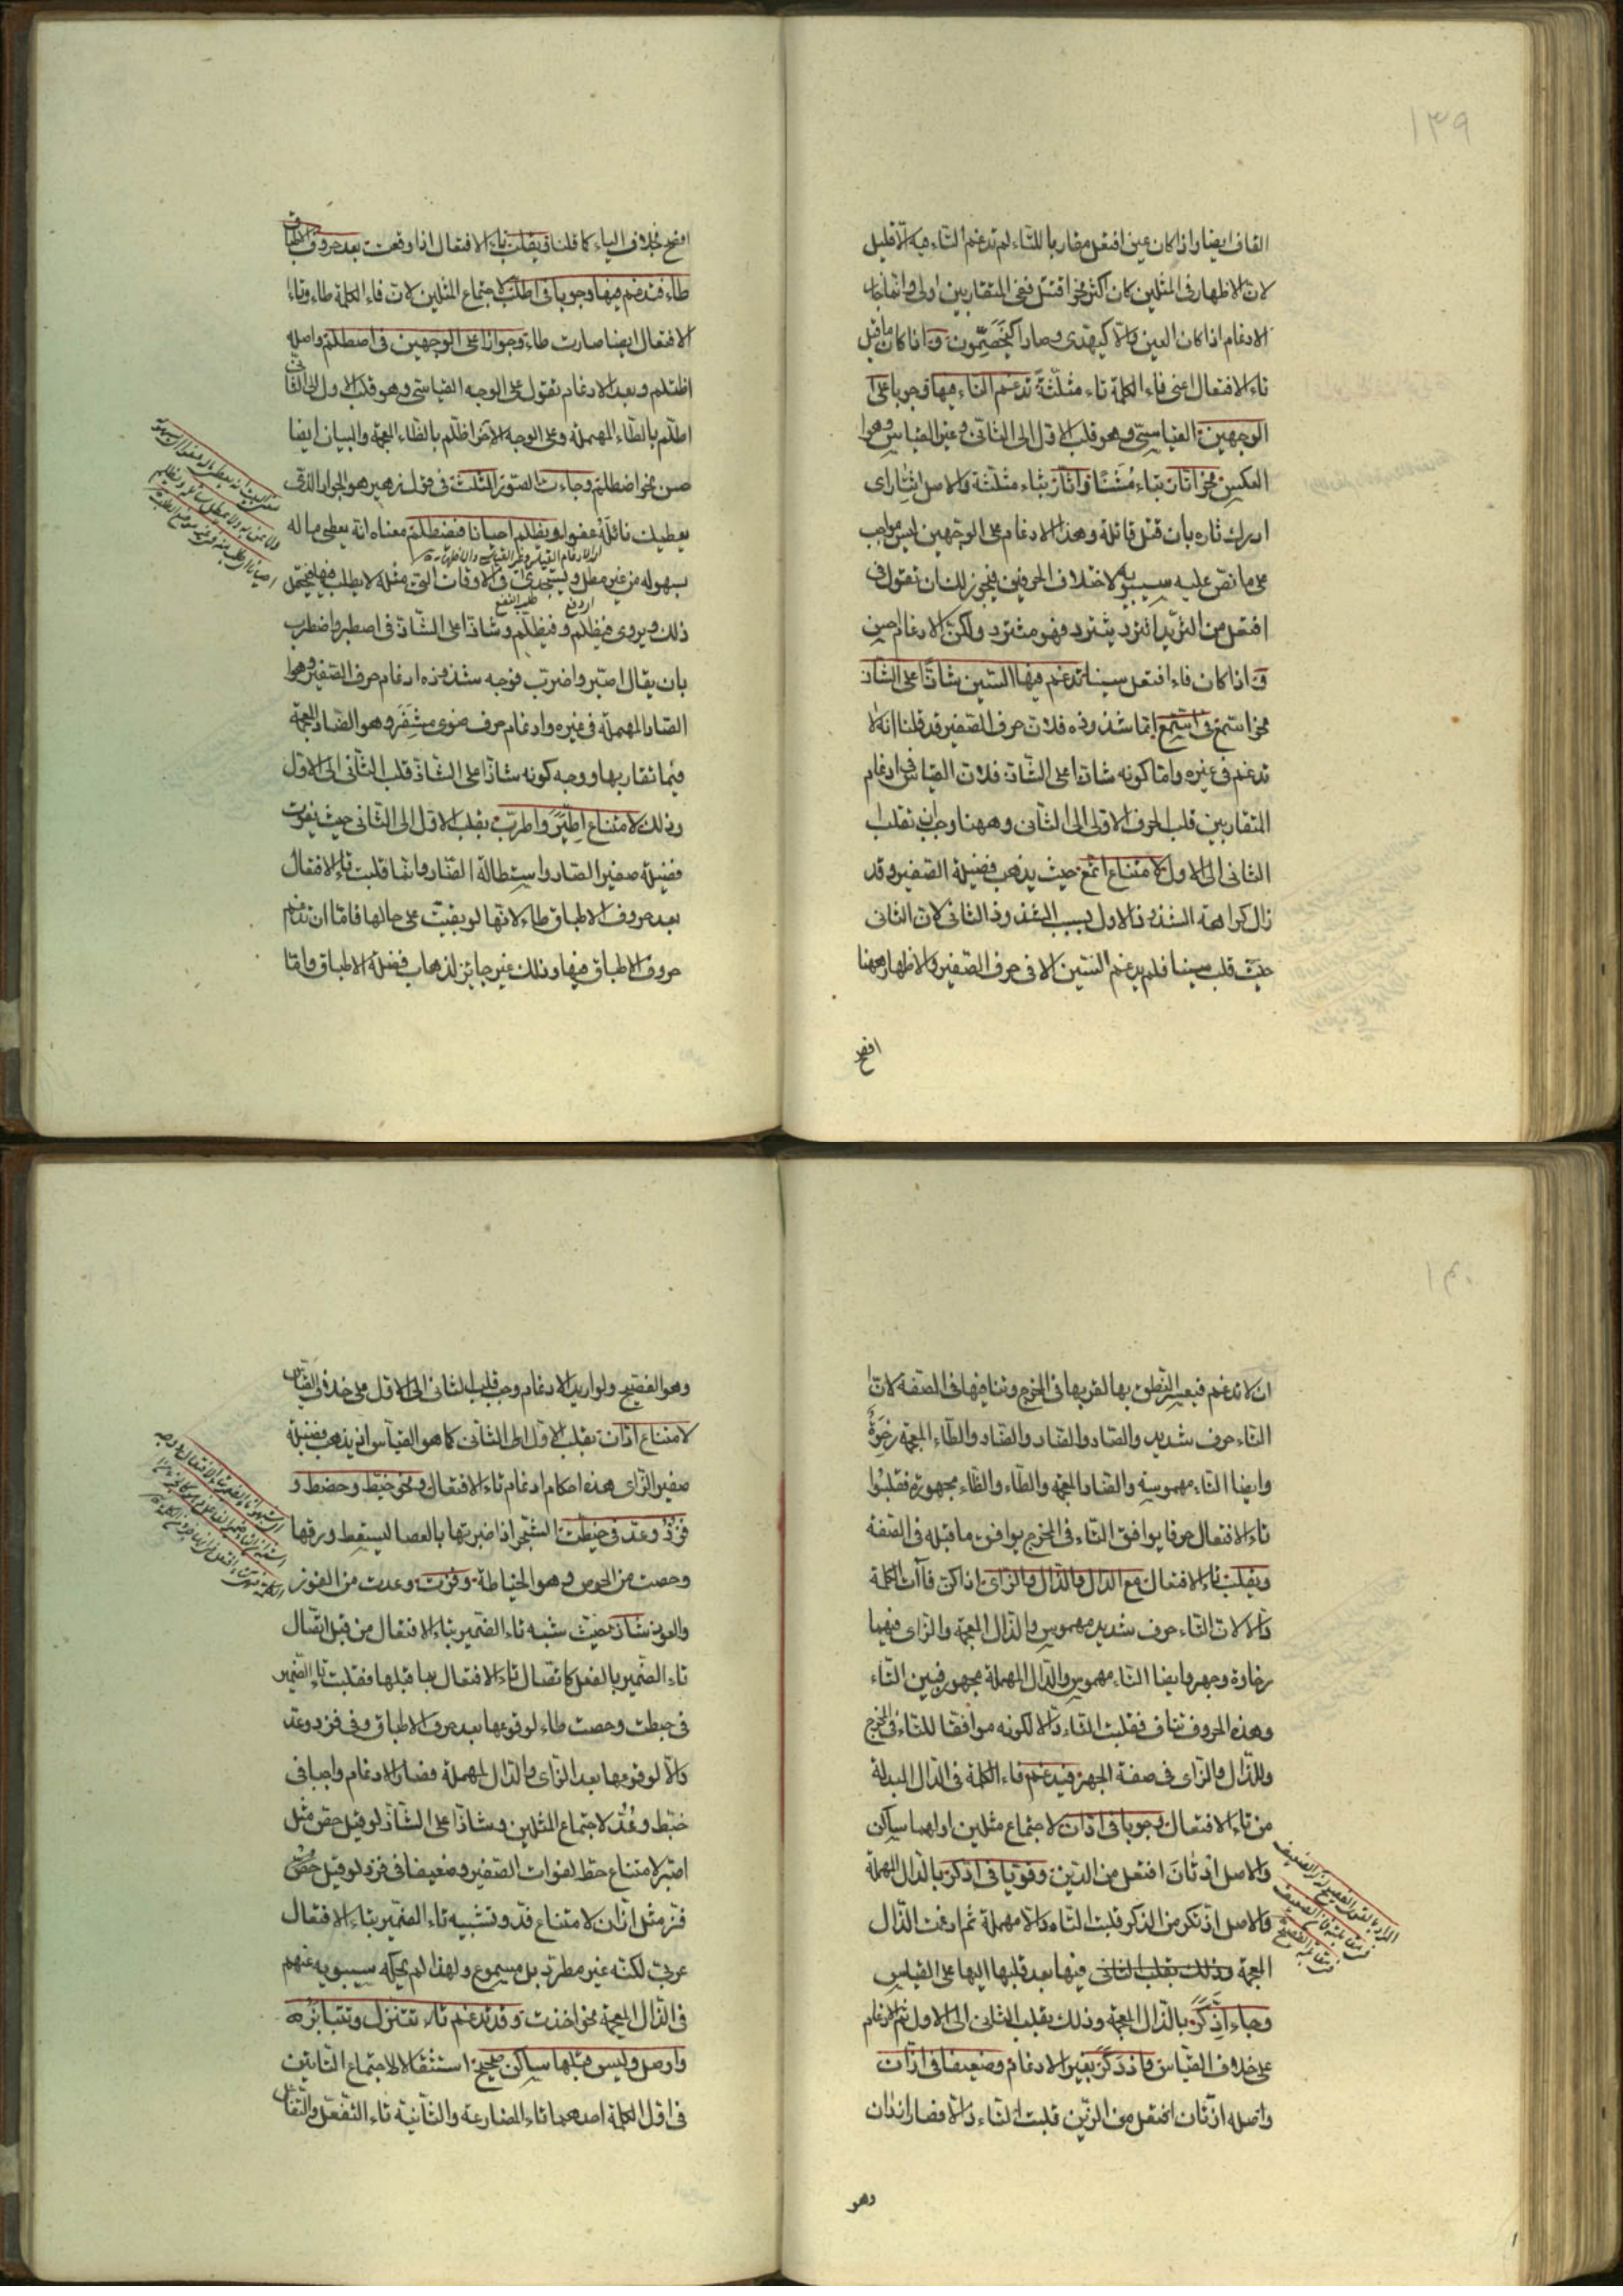 ١٣٩
القاف ايضا واذا كان عين افتعل مقاربا للتاء لم تدغم التاء فيه الا قليل
لان الاظهار فى المثلين كان اكثر نحو اقتتل ففى المتقاربين اولى وانما جاز
الادغام اذا كان العين دالا كيهدى وصادا كيخصمون واذا كان ما قبل
تاء الافتعال اعنى فاء الكلمة ثاء مثلثة تدغم الثاء فيها وجوبا على
الوجهين القياسى وهو قلب الاول الى الثانى وغير القياس وهو
العكس نحو اتّار بتاء مثناة واثّار بثاء مثلثة والاصل اثتار اى
ادرك ثاره بان قتل قاتله وهذا الادغام على الوجهين ليس بواجب
على ما نص عليه سيبويه لاختلاف الحرفين فيجوز لك ان تقول فى
افتعل من الثريد اثترد يثترد فهو مثترد ولكن الادغام حسن
واذا كان فاء افتعل سينا تدغم فيها السين شاذا على الشاذ
نحو استمع فى اسّمع انما شذوذه فلان حرف الصفير قد قلنا انه لا
تدغم فى غيره واما كونه شاذا على الشاذ فلان القياس فى ادغام
المتقاربين قلب الحرف الاولى الى الثانى وههنا وجب ان تقلب
الثانى الى الاول لامتناع اتّمع حيث يذهب فضيلة الصفير وقد
زال كراهة الشذوذ الاول بسبب الشذوذ الثانى لان الثانى
حيث قلب سينا فلم يدغم السين الا فى حرف الصفير والاظهار ههنا
افصح
افصح بخلاف الياء كما قلنا ويقلب تاء الافتعال اذا وقعت بعد حروف الاطباق
طاء فتدغم فيها وجوبا فى اطّلب لاجتماع المثلين لان فاء الكلمة طاء وتاء
الافتعال ايضا صارت طاء وجوازا على الوجهين فى اصطلم واصله
اظتلم وبعد الادغام تقول على الوجه القياسى وهو قلب الاول الى الثانى
اطّلم بالطاء المهملة وعلى الوجه الآخر اظّلم بالظاء المعجمة والبيان ايضا
حسن نحو اضطلم وجاءت الصور الثلث فى قول زهير هو الجواد الذى
يعطيك نائله عفوا ويظلم احيانا فيضطلم معناه انه يعطى ماله
بسهوله من غير مطل ويستجدى فى الاوقات التى مثله لا يطلب فيها فيحتمل
ذلك ويروى فيظلم وفيطلم وشاذا على الشاذ فى اصطبر واضطرب
بان يقال اصّبر واضّرب فوجه شذوذه ادغام حرف الصفير وهو
الصاد المهملة فى غيره وادغام حرف ضوى مشفر وهو الضاد المعجمة
فيما تقاربها ووجه كونه شاذا على الشاذ قلب الثانى الى الاول
وذلك لامتناع اطّبر واطّرب بقلب الاول الى الثانى حيث يفوت
فضيلة صفير الصاد واستطالة الضاد وانما قلبت تاء الافتعال
بعد حروف الاطباق طاء لانها لو بقيت على حالها فاما ان تدغم
حروف الاطباق فيها وذلك غير جائز لذهاب فضيلة الاطباق واما
١٤٠
ان لا تدغم فيعسر النطق بها لقربها فى المخرج وتنافيها فى الصفة لان
التاء حرف شديد والصاد والضاد والظاء المعجمة رخوة
وايضا التاء مهموسة والضاد المعجمة والطاء والظاء مجهورة فقلبوا
تاء الافتعال حرفا يوافق التاء فى المخرج ويوافق ما قبله فى الصفة
ويقلب تاء الافتعال مع الدال والذال والزاى اذا كن فاآت الكلمة
دالا لان التاء حرف شديد مهموس والذال المعجمة والزاى فيهما
رخاوة وجهر وايضا التاء مهموس والدال المهملة مجهور فبين التاء
وهذه الحروف تناف فقلبت التاء دالا لكونه موافقا للتاء فى المخرج
وللذال والزاى فى صفة الجهر فيدغم فاء الكلمة فى الدال المبدلة
من تاء الافتعال وجوبا فى ادّان لاجتماع مثلين اولهما ساكن
والاصل ادتان افتعل من الدين وقويا فى ادّكر بالدال المهملة
والاصل اذتكر من الذكر قلبت التاء دالا مهملة ثم ادغمت الذال
المعجمة وذلك بقلب الثانى فيها بعد قلبها اليها على القياس
وجاء اذّكر بالذال المعجمة وذلك بقلب الثانى الى الاول ثم الادغام
على خلاف القياس واذدكر بغير الادغام وضعيفا فى ازّان
واصله ازتان افتعل من الزين قلبت التاء دالا فصار ازدان
وهو
وهو الفصيح ولو اريد الادغام وجب قلب الثانى الى الاول على خلاف القياس
لامتناع ادّان بقلب الاول الى الثانى كما هو القياس اذ يذهب فضيلة
صفير الزاى هذه احكام ادغام تاء الافتعال ونحو خبط وحصط و
فزد وعدّ فى خبطت الشجر اذا ضربتها بالعصا ليسقط ورقها
وحصت من الحوص وهو الخياطة وفزت وعدت من الفوز
والعود شاذ حيث شبه تاء الضمير بتاء الافتعال من قبل اتصال
تاء الضمير بالفعل كاتصال تاء الافتعال بما قبلها فقلبت تاء الضمير
فى خبطت وحصت طاء لوقوعها بعد حرف الاطباق وفى فزد وعدّ
دالا لوقوعها بعد الزاى والدال المهملة فصار الادغام واجبا فى
خبط وعدّ لاجتماع المثلين وشاذا على الشاذ لو قيل حصّ مثل
اصّبر لامتناع حطّ لفوات الصفير وضعيفا فى فزد لو قيل
فزّ مثل ازّان لامتناع فدّ وتشبيه تاء الضمير بتاء الافتعال
عربى لكنه غير مطرد بل مسموع ولهذا لم يحكه سيبويه عنهم
فى الذال المعجمة نحو اخذت وقد تدغم تاء تتنزل وتتنابزوا
وصلا وليس قبلها ساكن صحيح استثقالا لاجتماع التائين
فى اول الكلمة احدهما تاء المضارعة والثانية تاء التفعل والتفاعل